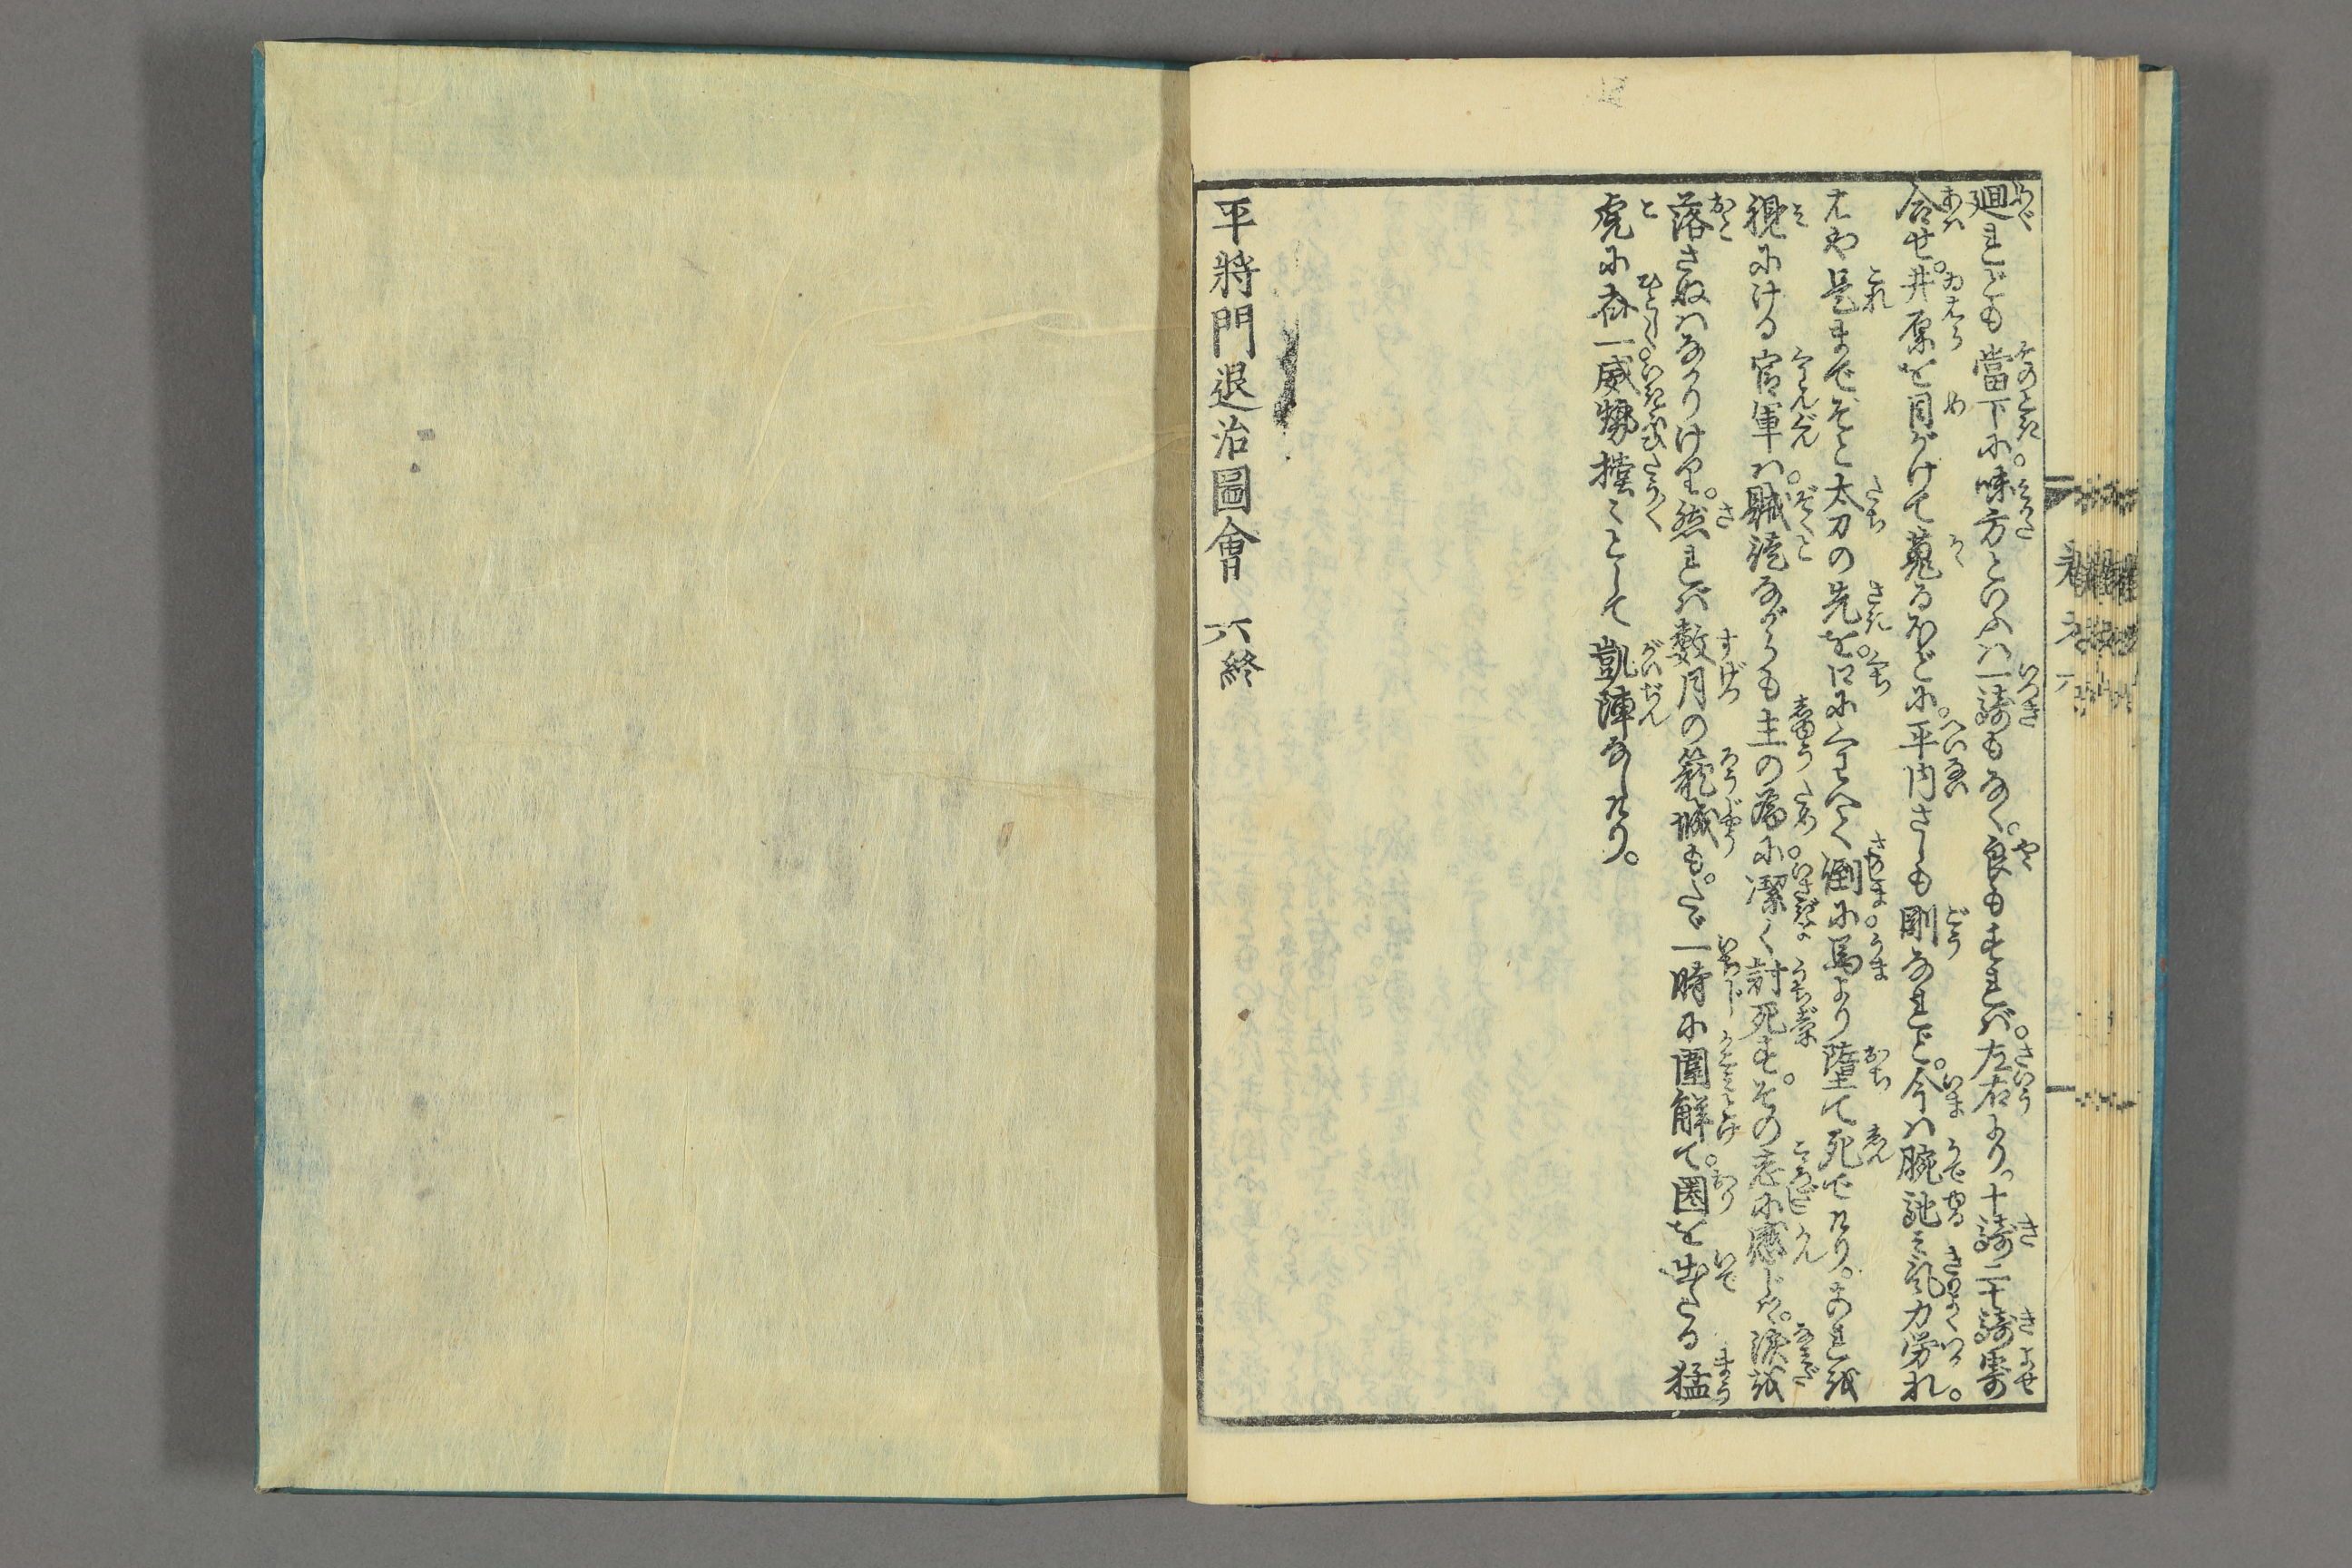 廻れども當下に味方といふハ一騎もなく。良もすれバ。左右より。十騎二十騎寄
合せ。井原を目がけて蒐るほどに。平内さしも剛なれど。今ハ腕訛ミ氣力労れ。
はや是までぞと太刀の先を。口にくわへて倒に馬より墮て死てけり。これを
視にける官軍ハ。賊徒ながらも主の為に。潔く討死す。その志に感じけん。涙を
落さぬハなかりけり。然れバ數月の籠城も。たゞ一時に圍解て。圏を出たる猛
虎に斉一威勢揚〻として凱陣なしけり。
平將門退治圖會 六終